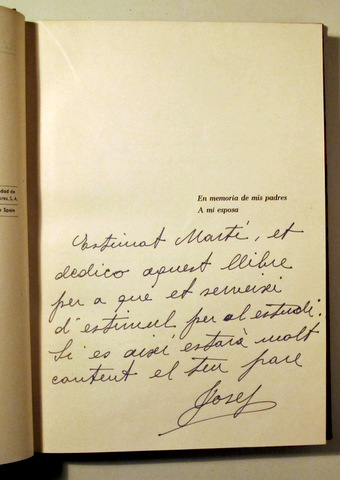 dad de
ores, S. A.
Spain
En memoria de mis padres
A mi esposa
Estimat Martí, et
dedico aquest llibre
per a que et serveixi
d'estimul per al estudi.
Si es així estarà molt
content el teu pare
Josef